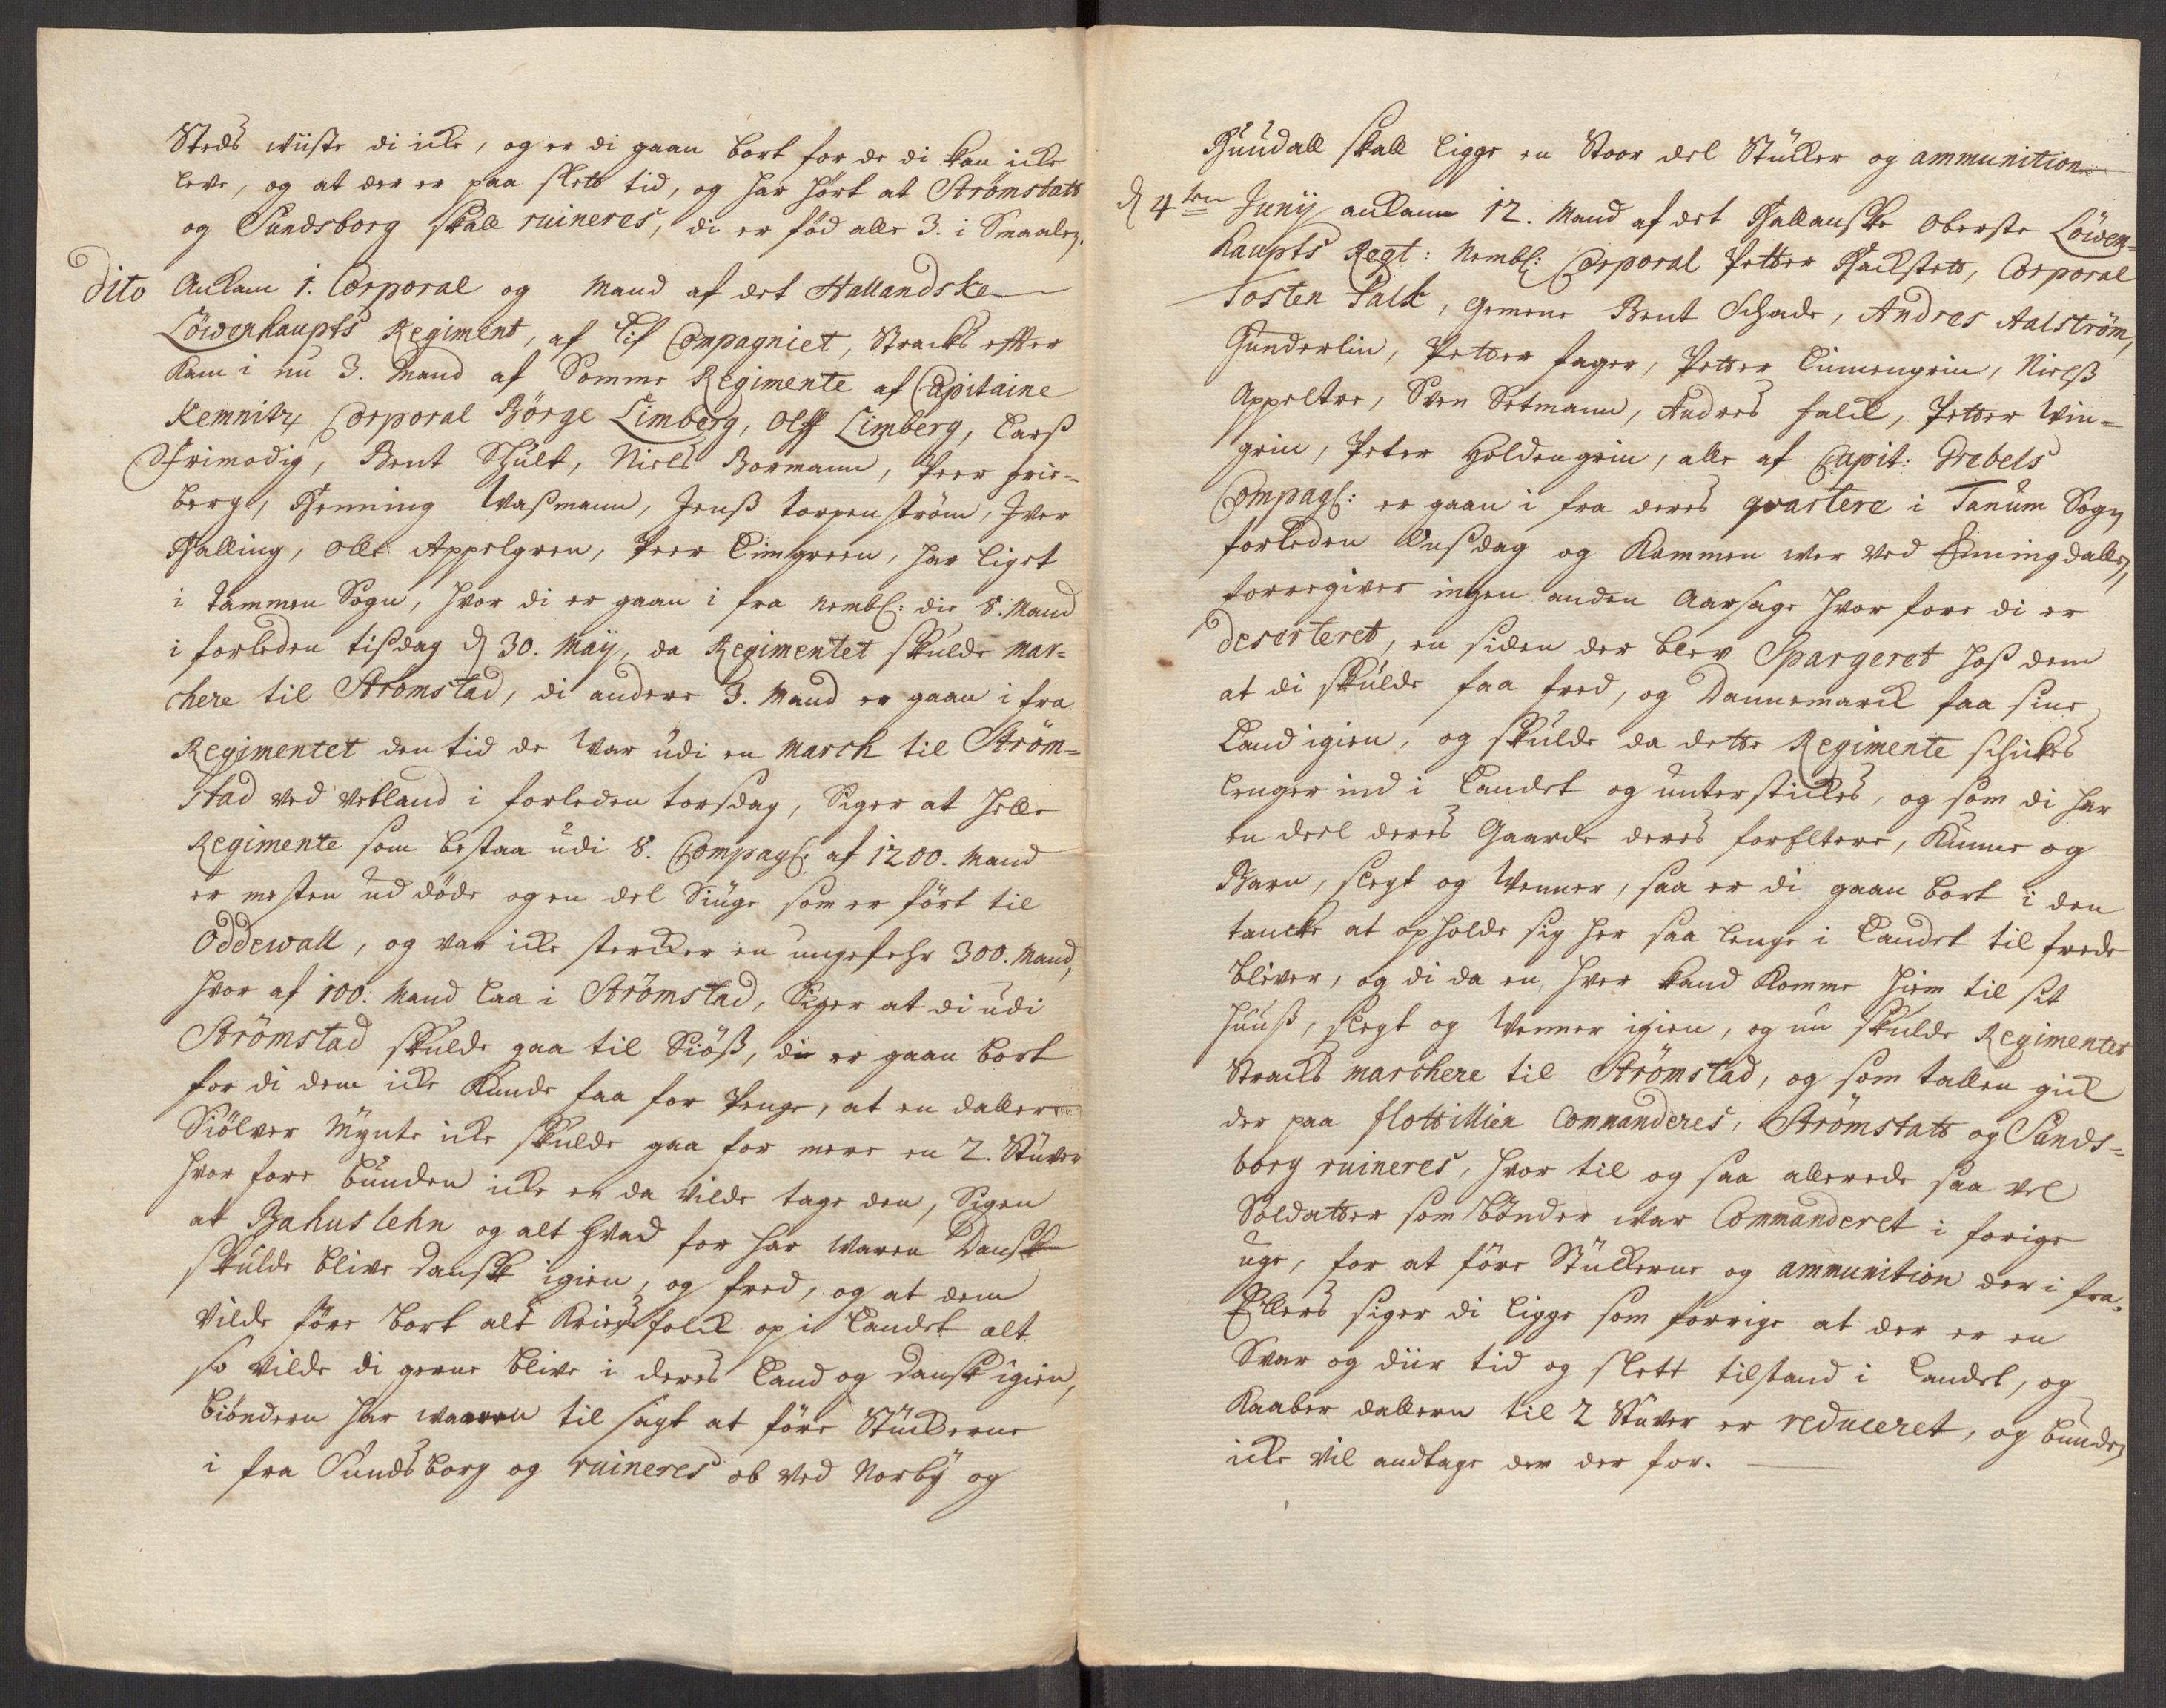 Steds wiiste di icke, og er di gaan bort for de di kan icke
leve, og at der er paa slett tid, og har hört at Strömstatt
og Sundsborg skall ruineres, di er föd alle 3. i Smaalen.
Dito Ankam 1. Corporal og Mand af det Hallandske
Löwenhaupts Regiment, af Lif Compagniet, Stracks efter
kam i nu 3. Mand af Somme Regimente af Capitaine
Kemnitz Corporal Börge Limberg, Olff Limberg, Larß
Frimodig, Bent Schult, Niels Bormann, Peer Frie-
berg, Henning Waßmann, Jenß Torpenström, Iver
Halling, Olle Appelgren, Peer Limgreen, har liget
i Tammen Sogn, hvor di er gaan i fra Nembl: die 8. Mand
i forleden tisdag d 30. Maÿ, da Regimentet skulde mar-
chere til Strömstad, di andere 3. Mand er gaan i fra
Regimentet den tid de war udi en March til Ström-
stad ved Vetland i forleden torsdag, Siger at helle
Regimente som bestaa udi 8. Compagl: af 1200. Mand
er mesten ud döde og en del Siuge som er fört til
Oddewall, og var icke stercker en ungefehr 300. Mand,
hvor af 100. Mand laa i Strömstad, Siger at di udi
Strömstad skulde gaa til Siöß, die er gaan bort
for di dem icke kunde faa for Penge, at en daller
Siölver Mynte icke skulde gaa for mere en 2. Stüver
hvor fore bunden icke en da vilde tage den, Sigen
at Bahuslehn og alt hvad for har waren Dansk
skulde blive Dansk igien, og fred, og at dem
vilde före bort alt Kriegsfolck op i Landet alt
so vilde di gerne blive i deres Land og Dansk igien,
biöndern har waaren til sagt at före Stückerne
i fra Sundsborg og ruineres ob ved Norbÿ og
Huudall skall ligge en Stoor del Stücker og ammunition
d 4ten Junÿ ankam 12. Mand af det Hallanske Oberste Löwen-
haupts Regt: Nembl: Corporal Petter Hackstett, Corporal
Tosten Falk, Gemene Bent Schade, Andres Aalström,
Gunderlin, Petter Fager, Petter Linnengrin, Nielß
Appeltre, Sven Setmann, Andres Falck, Petter Win-
grin, Peter Holdengrin, alle af Capit: Grebels
Compagl: er gaan i fra deres qvartere i Tanum Sogn
forleden Onsdag og kommen over ved Enningdallen,
forregiver ingen anden Aarsage hvor fore di er
deserteret, en siden der blev Spargeret hoß dem
at di skulde faa fred, og Dannemarck faa sine
Land igien, og skulde da dette Regimente schickes
lenger ind i Landet og unterstickes, og som di har
en deel deres Gaarde deres foreltere, Kunne og
Barn, slegt og Venner, saa er di gaan bort i den
tancke at opholde sig her saa lenge i Landet til frede
bliver, og di da en hver kand komme hiem til sit
huuß, slegt og Venner igien, og nu skulde Regimentet
Stracks marchere til Strömstad, og som tallen gick
der paa flottillien Commanderes, Strömstatt og Sunds-
borg ruineres, hvor til og saa allerede saa vel
Soldatter som bönder war Commanderet i forige
uge, for at före Stückerne og ammunition der i fra,
Ellers siger di ligge som forrige at der er en
Svar og diir tid og slett tilstand i Landet, og
Kaaber dallern til 2 Stüver er reduceret, og bunden
icke vil andtage dem der for.